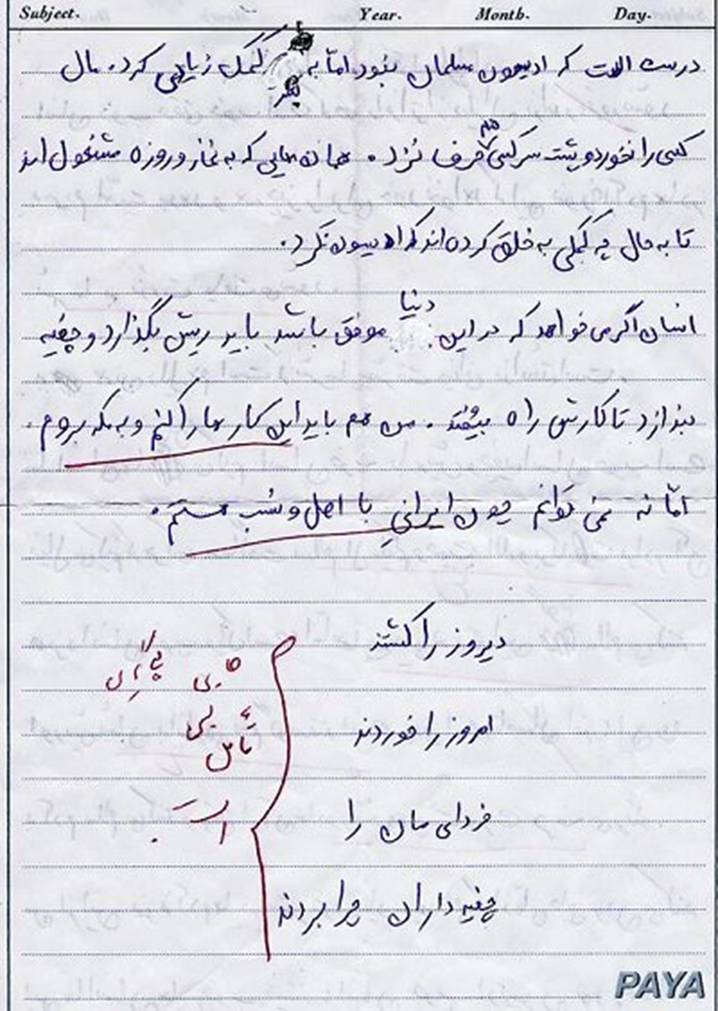 Subject. Year. Month. Day.
درست است که ادیسون مسلمان نبود اما به بشر کمک زیادی کرد. مال
کسی را نخورد و پشت سر کسی هم حرف نزد. همانهایی که به نماز و روزه مشغول اند
تا به حال چه کمکی به خلق کرده اند که ادیسون نکرد.
انسان اگر می خواهد که در این دنیا موفق باشد باید ریش بگذارد و چفیه
بندازد تا کارش راه بیفتد. من هم باید این کارها را کنم و به مکه بروم.
اما نه نمی توانم چون ایرانی با اصل و نسب هستم.
دیروز را کشتند
امروز را خوردند
فردای مان را
چفیه داران چرا بردند
جای
تأمل
است
PAYA